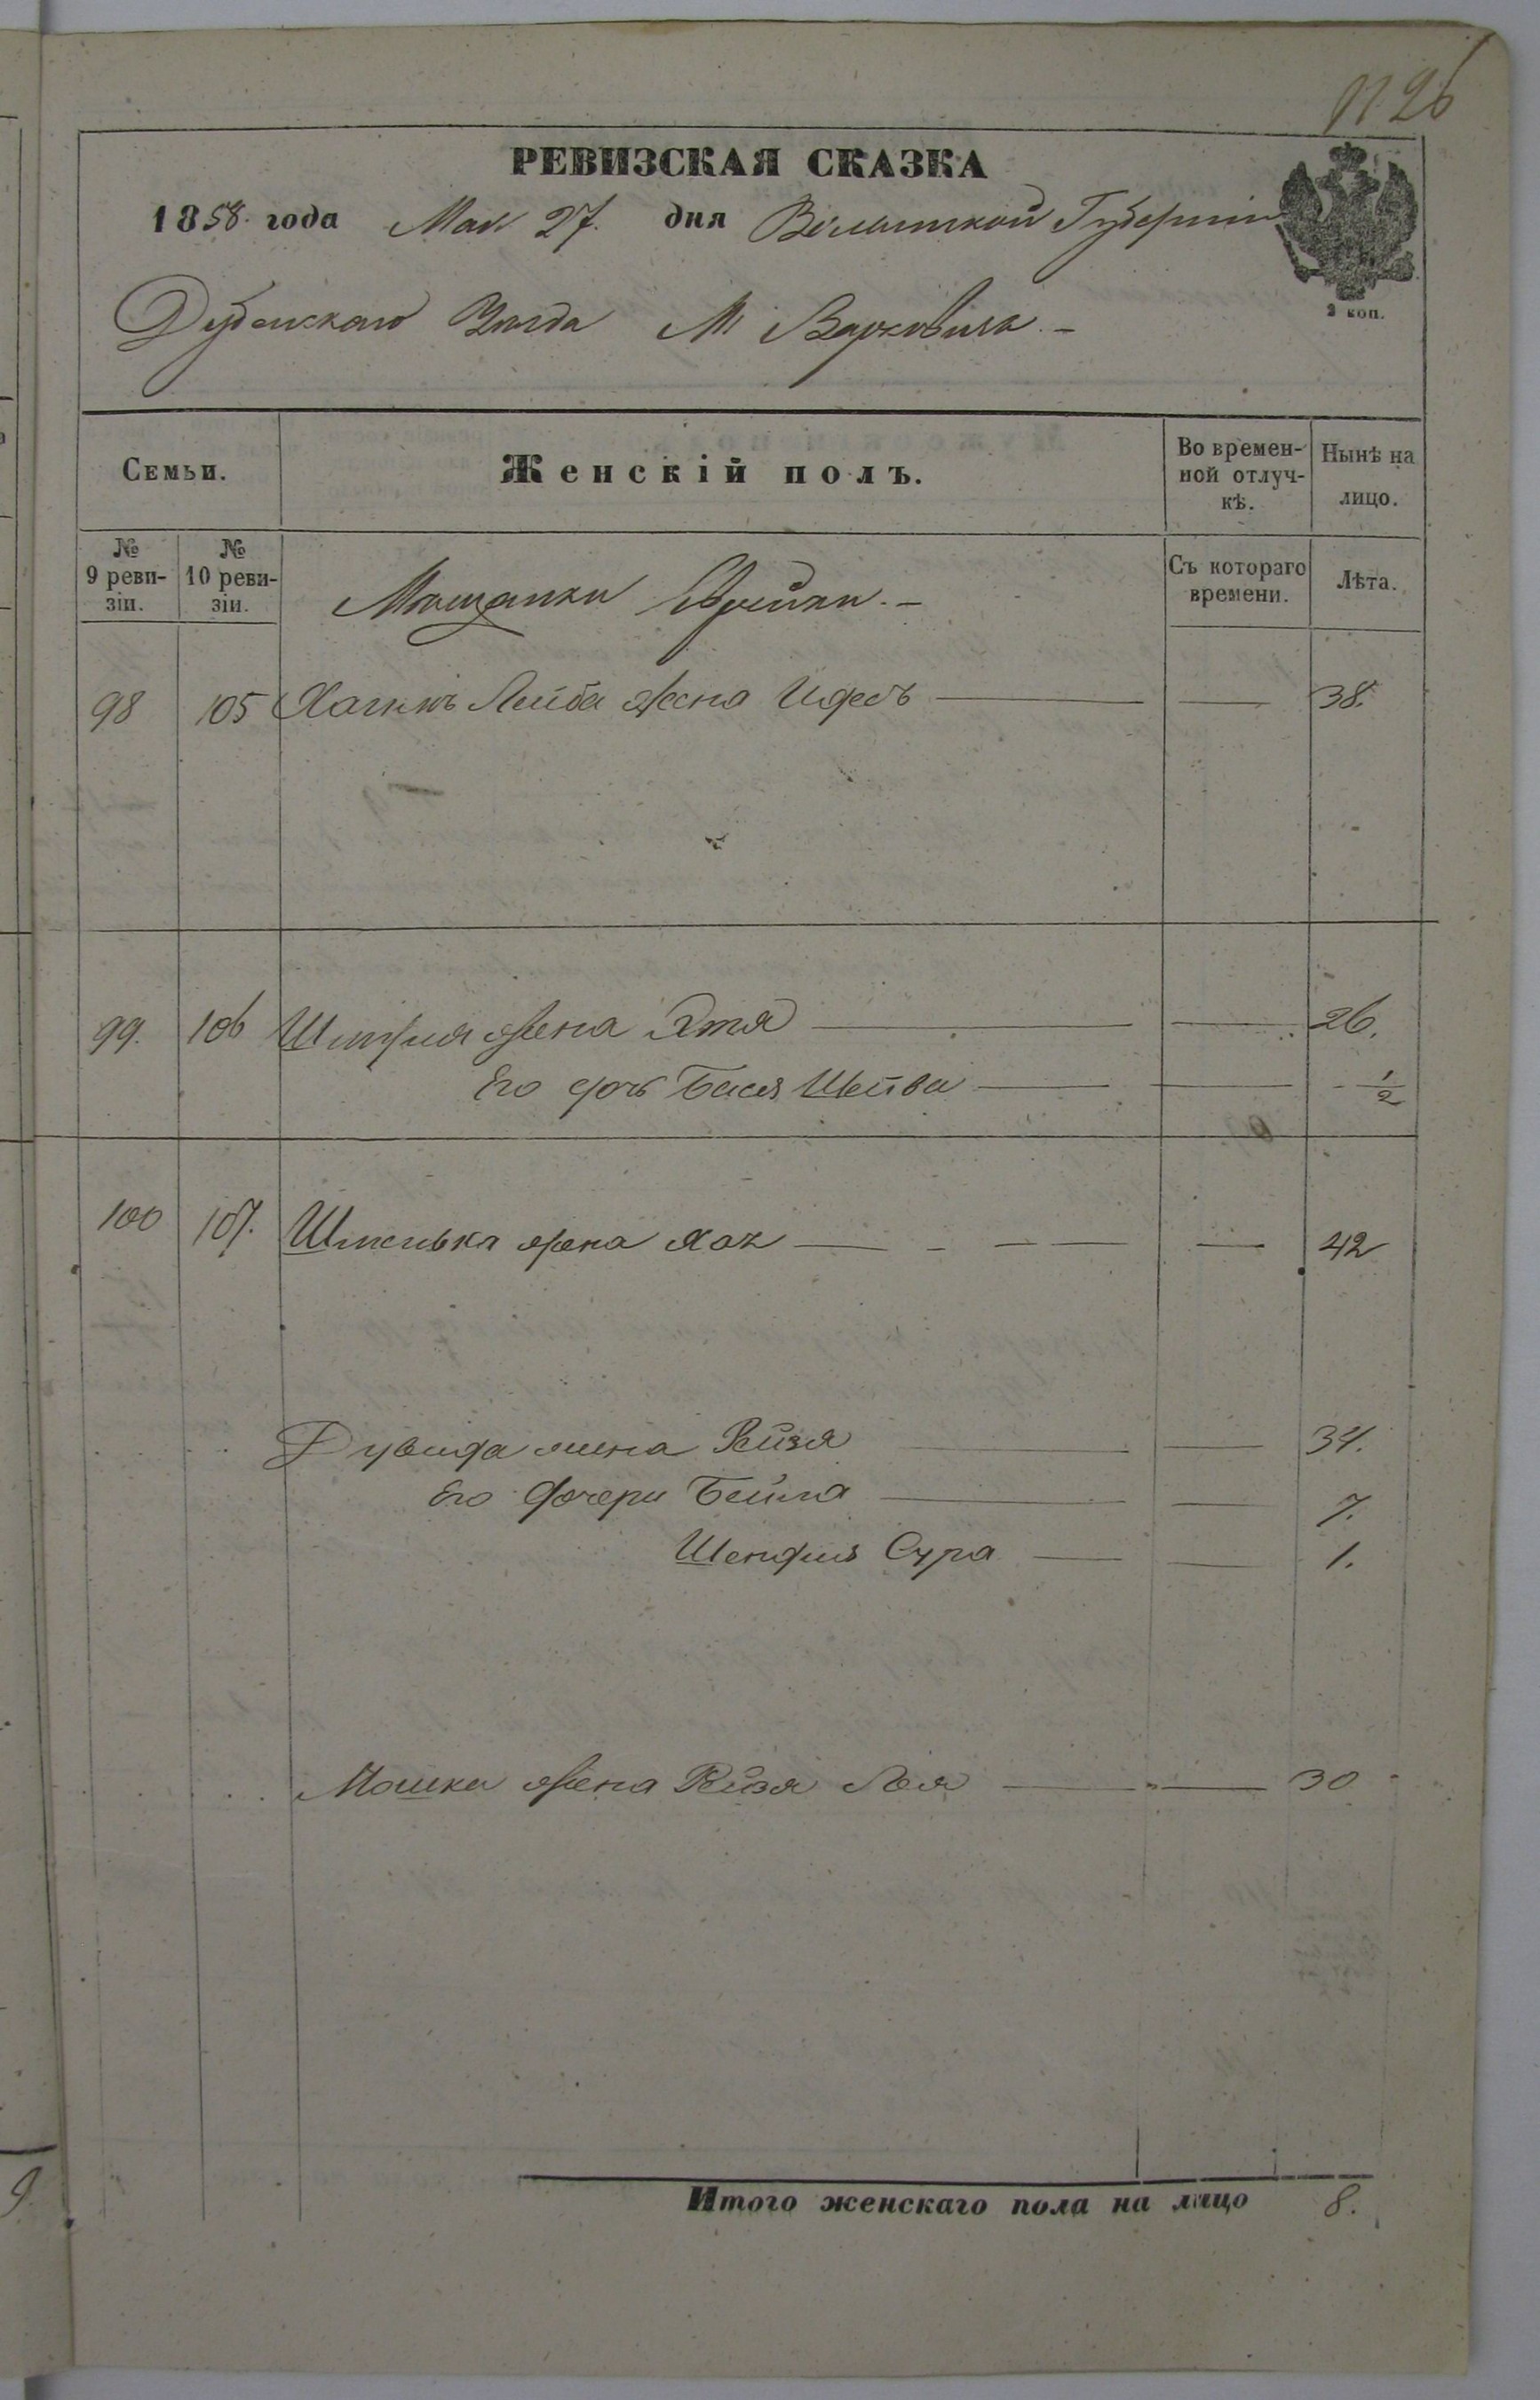 № 26
РЕВИЗСКАЯ СКАЗКА
1858 года Мая 27. дня Волынской Губерніи
2 коп.
Дубенскаго Уѣзда М Варковича. –
Семьи.
Женскій полъ.
Во времен-
ной отлуч-
кѣ.
Нынѣ на
лицо.
№
9 реви-
зіи.
№
10 реви-
зіи.
Мѣщанки Еврейки. –
Съ котораго
времени.
Лѣта.
98 105 Лейба жена Идесъ 38.
99. 106 жена Этя 26.
Его дочь Бася Шейва 1/2
100 107. Шмелька жена Хая 42
Дувида жена Рейзя 34.
Его дочери Бейла 7.
Шендля Сура 1.
Мошка жена Рейзя Лея 30
Итого женскаго пола на лицо 8.
9.